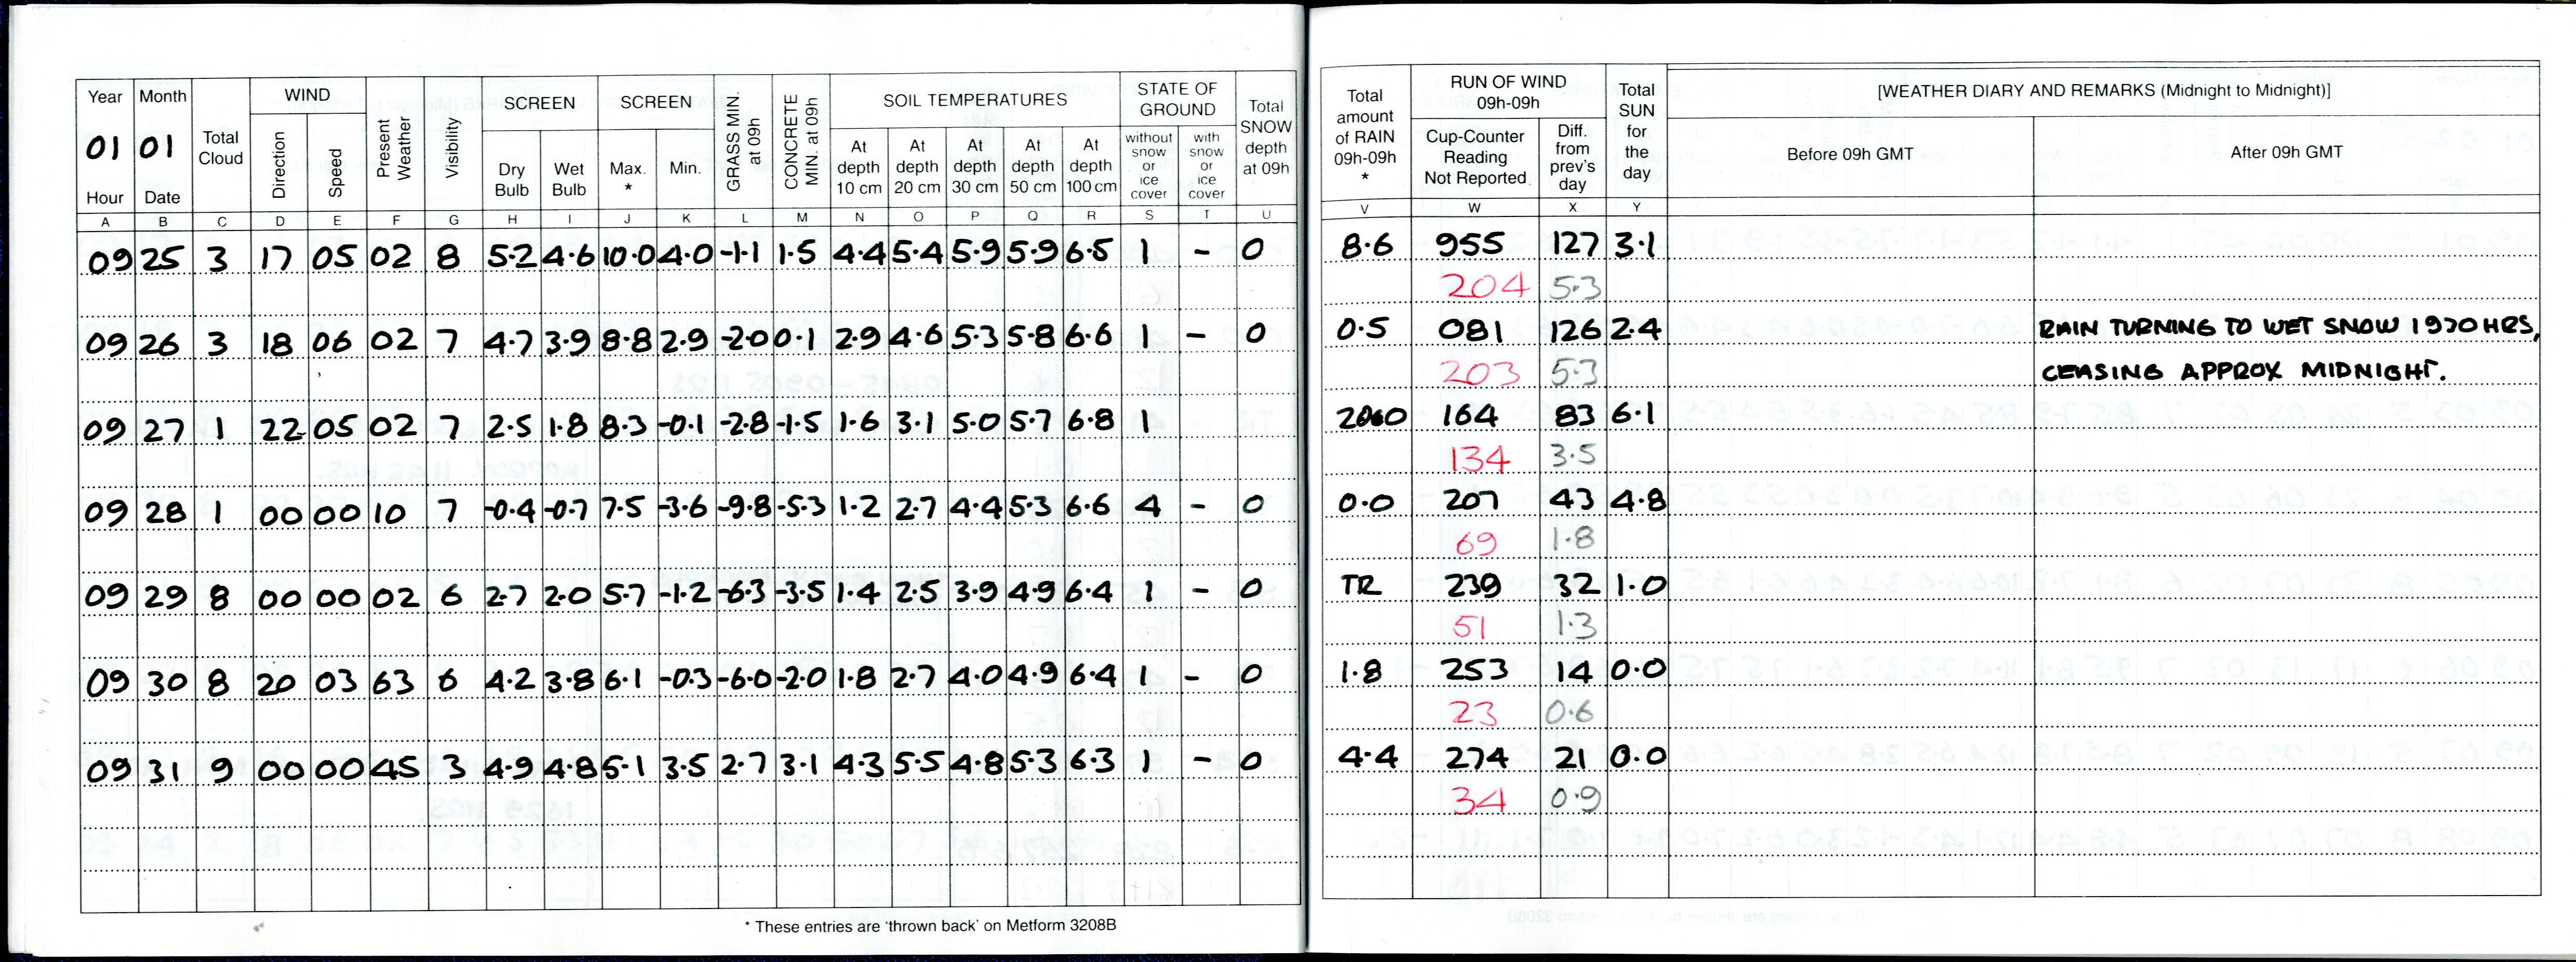 Year Month Total Cloud WIND Present Weather Visibility SCREEN SCREEN GRASS MIN. at 09h CONCRETE MIN. at 09h SOIL TEMPERATURES STATE OF GROUND Total SNOW depth at 09h
01 01 Direction Speed Dry Bulb Wet Bulb Max. * Min. At depth 10 cm At depth 20 cm At depth 30 cm At depth 50 cm At depth 100 cm without snow or ice cover with snow or ice cover
Hour Date
A B C D E F G H I J K L M N O P Q R S T U
09 25 3 17 05 02 8 5.2 4.6 10.0 4.0 -1.1 1.5 4.4 5.4 5.9 5.9 6.5 1 - 0
09 26 3 18 06 02 7 4.7 3.9 8.8 2.9 -2.0 0.1 2.9 4.6 5.3 5.8 6.6 1 - 0
09 27 1 22 05 02 7 2.5 1.8 8.3 -0.1 -2.8 -1.5 1.6 3.1 5.0 5.7 6.8 1
09 28 1 00 00 10 7 -0.4 -0.7 7.5 -3.6 -9.8 -5.3 1.2 2.7 4.4 5.3 6.6 4 - 0
09 29 8 00 00 02 6 2.7 2.0 5.7 -1.2 -6.3 -3.5 1.4 2.5 3.9 4.9 6.4 1 - 0
09 30 8 20 03 63 6 4.2 3.8 6.1 -0.3 -6.0 -2.0 1.8 2.7 4.0 4.9 6.4 1 - 0
09 31 9 00 00 45 3 4.9 4.8 5.1 3.5 2.7 3.1 4.3 5.5 4.8 5.3 6.3 1 - 0
* These entries are 'thrown back' on Metform 3208B
Total amount of RAIN 09h-09h * RUN OF WIND 09h-09h Total SUN for the day [WEATHER DIARY AND REMARKS (Midnight to Midnight)]
Cup-Counter Reading Not Reported Diff. from prev's day Before 09h GMT After 09h GMT
V W X Y
8.6 955 127 3.1
204 5.3
0.5 081 126 2.4 RAIN TURNING TO WET SNOW 1930 HRS,
203 5.3 CEASING APPROX MIDNIGHT.
164 83 6.1
134 3.5
0.0 207 43 4.8
69 1.8
TR 239 32 1.0
51 1.3
1.8 253 14 0.0
23 0.6
4.4 274 21 0.0
34 0.9